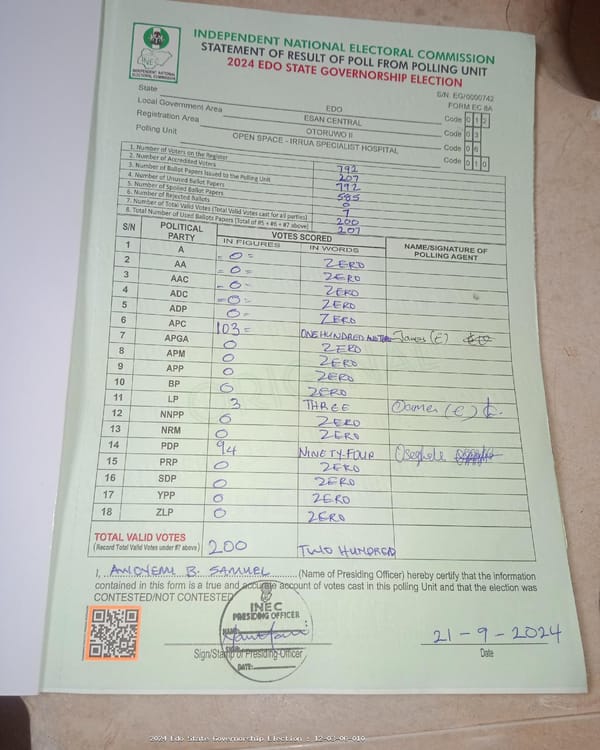 INEC
INDEPENDENT NATIONAL ELECTORAL COMMISSION
INDEPENDENT NATIONAL ELECTORAL COMMISSION
STATEMENT OF RESULT OF POLL FROM POLLING UNIT
2024 EDO STATE GOVERNORSHIP ELECTION
S/N. EG/0000742
FORM EC 8A
State EDO Code 012
Local Government Area ESAN CENTRAL Code 03
Registration Area OTORUWO II Code 06
Polling Unit OPEN SPACE - IRRUA SPECIALIST HOSPITAL Code 010
1. Number of Voters on the Register 792
2. Number of Accredited Voters 207
3. Number of Ballot Papers Issued to the Polling Unit 792
4. Number of Unused Ballot Papers 585
5. Number of Spoiled Ballot Papers 0
6. Number of Rejected Ballots 7
7. Number of Total Valid Votes (Total Valid Votes cast for all parties) 200
8. Total Number of Used Ballots Papers (Total of #5 + #6 + #7 above) 207
S/N POLITICAL PARTY VOTES SCORED NAME/SIGNATURE OF POLLING AGENT
IN FIGURES IN WORDS
1 A = 0 = ZERO
2 AA = 0 = ZERO
3 AAC = 0 = ZERO
4 ADC =0= ZERO
5 ADP 0= ZERO
6 APC 103= ONE HUNDRED AND THREE James (E)
7 APGA 0 ZERO
8 APM 0 ZERO
9 APP 0 ZERO
10 BP 0 ZERO
11 LP 3 THREE (E)
12 NNPP 0 ZERO
13 NRM 0 ZERO
14 PDP 94 NINETY-FOUR Oseghele
15 PRP 0 ZERO
16 SDP 0 ZERO
17 YPP 0 ZERO
18 ZLP 0 ZERO
TOTAL VALID VOTES
(Record Total Valid Votes under #7 above) 200 TWO HUNDRED
I, ANOYEMI B. SAMUEL (Name of Presiding Officer) hereby certify that the information
contained in this form is a true and accurate account of votes cast in this polling Unit and that the election was
CONTESTED/NOT CONTESTED
INEC
PRESIDING OFFICER
NAME:
SIGN:
DATE:
21-9-2024
Sign/Stamp of Presiding Officer Date
2024 Edo State Governorship Election : 12-03-06-010